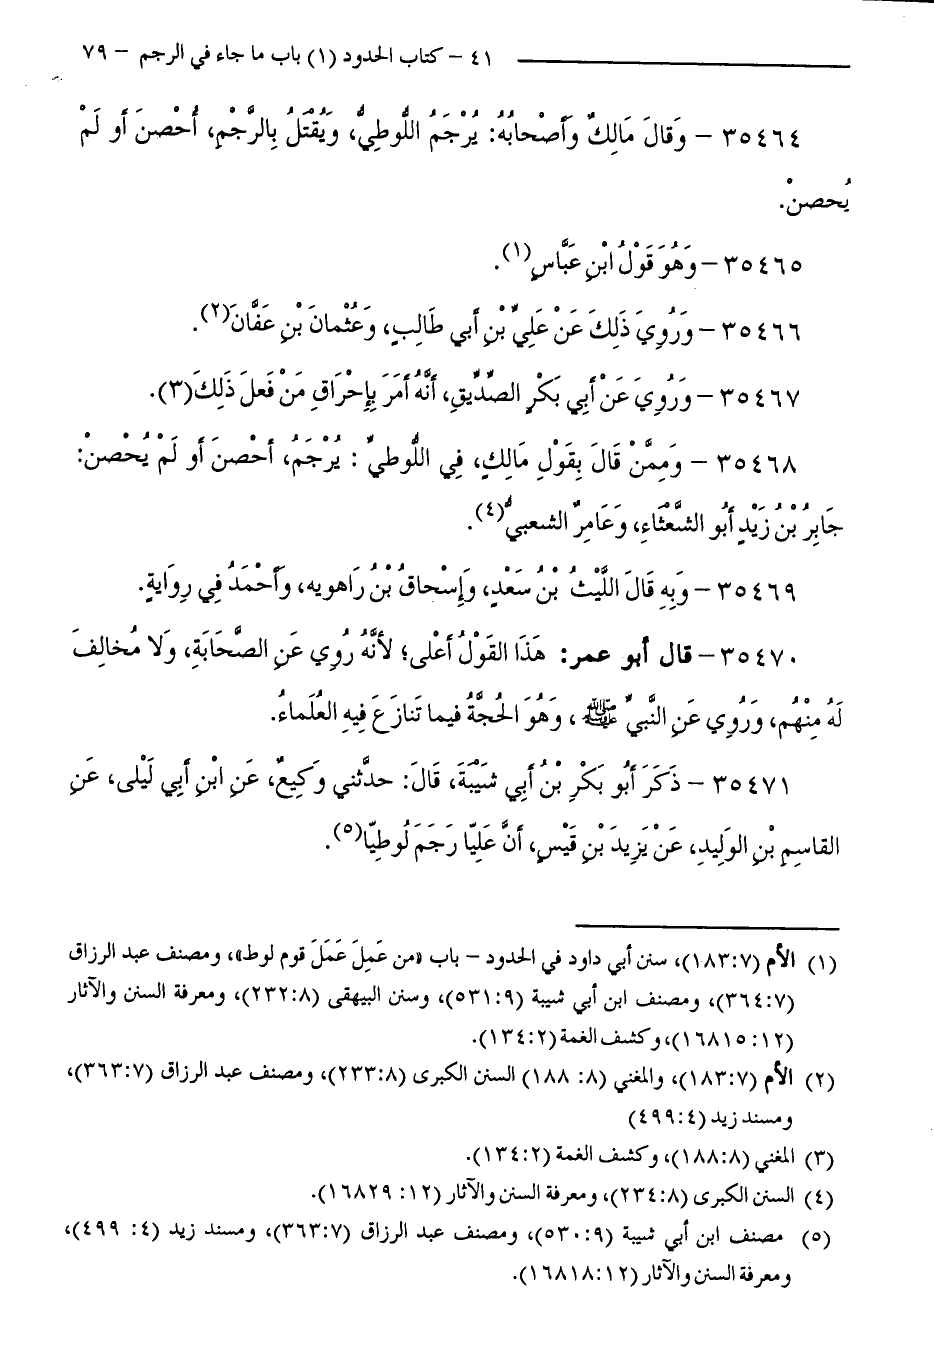 ٤١ – كتاب الحدود (١) باب ما جاء في الرجم – ٧٩
٣٥٤٦٤ – وَقالَ مَالِكٌ وَأَصْحابُهُ: يُرْجَمُ اللُّوطِيُّ، وَيُقْتَلُ بِالرَّجْمِ، أُحْصنَ أو لَمْ
يُحصنْ.
٣٥٤٦٥ – وَهُوَ قَوْلُ ابْنِ عَبَّاسٍ(١).
٣٥٤٦٦ – وَرُوِيَ ذَلِكَ عَنْ عَلِيِّ بْنِ أبي طَالِبٍ، وَعُثْمانَ بْنِ عَفَّانَ(٢).
٣٥٤٦٧ – وَرُوِيَ عَنْ أبِي بَكْرٍ الصِّدِّيقِ، أنَّهُ أمَرَ بِإحْراقِ مَنْ فَعلَ ذَلِكَ(٣).
٣٥٤٦٨ – وَمِمَّنْ قَالَ بِقَوْلِ مَالِكٍ، فِي اللُّوطيِّ : يُرْجَمُ، أحْصنَ أو لَمْ يُحْصنْ:
جَابِرُ بْنُ زَيْدٍ أبُو الشَّعْثَاءِ، وَعَامِرٌ الشعبيُّ(٤).
٣٥٤٦٩ – وَبِهِ قَالَ اللَّيْثُ بْنُ سَعْدٍ، وَإِسْحاقُ بْنُ رَاهويه، وَأحْمَدُ فِي رِوايَةٍ.
٣٥٤٧٠ – قال أبو عمر: هَذَا القَوْلُ أعْلى؛ لأنَّهُ رُوِي عَنِ الصَّحَابَةِ، وَلا مُخالِفَ
لَهُ مِنْهُم، وَرُوِي عَنِ النَّبيِّ ﷺ ، وَهُوَ الحُجَّةُ فيما تَنازَعَ فِيهِ العُلَماءُ.
٣٥٤٧١ – ذَكَرَ أَبُو بَكْرِ بْنُ أبِي شَيْبَةَ، قَالَ: حدَّثني وَكِيعٌ، عَنِ ابْنِ أبِي لَيْلى، عَنِ
القاسِمِ بْنِ الوَلِيدِ، عَنْ يَزِيدَ بْنِ قَيْسٍ، أنَّ عَلِيّا رَجَمَ لُوطِيّا(٥).
(١) الأم (١٨٣:٧)، سنن أبي داود في الحدود – باب «من عَمِلَ عَمَلَ قوم لوط»، ومصنف عبد الرزاق
(٣٦٤:٧)، ومصنف ابن أبي شيبة (٥٣١:٩)، وسنن البيهقى (٢٣٢:٨)، ومعرفة السنن والآثار
(١٦٨١٥:١٢)، وكشف الغمة (١٣٤:٢).
(٢) الأم (١٨٣:٧)، والمغني (٨: ١٨٨) السنن الكبرى (٢٣٣:٨)، ومصنف عبد الرزاق (٣٦٣:٧)،
ومسند زيد (٤٩٩:٤)
(٣) المغني (١٨٨:٨)، وكشف الغمة (١٣٤:٢).
(٤) السنن الكبرى (٢٣٤:٨)، ومعرفة السنن والآثار (١٢: ١٦٨٢٩).
(٥) مصنف ابن أبي شيبة (٥٣٠:٩)، ومصنف عبد الرزاق (٣٦٣:٧)، ومسند زيد (٤: ٤٩٩)،
ومعرفة السنن والآثار (١٦٨١٨:١٢).